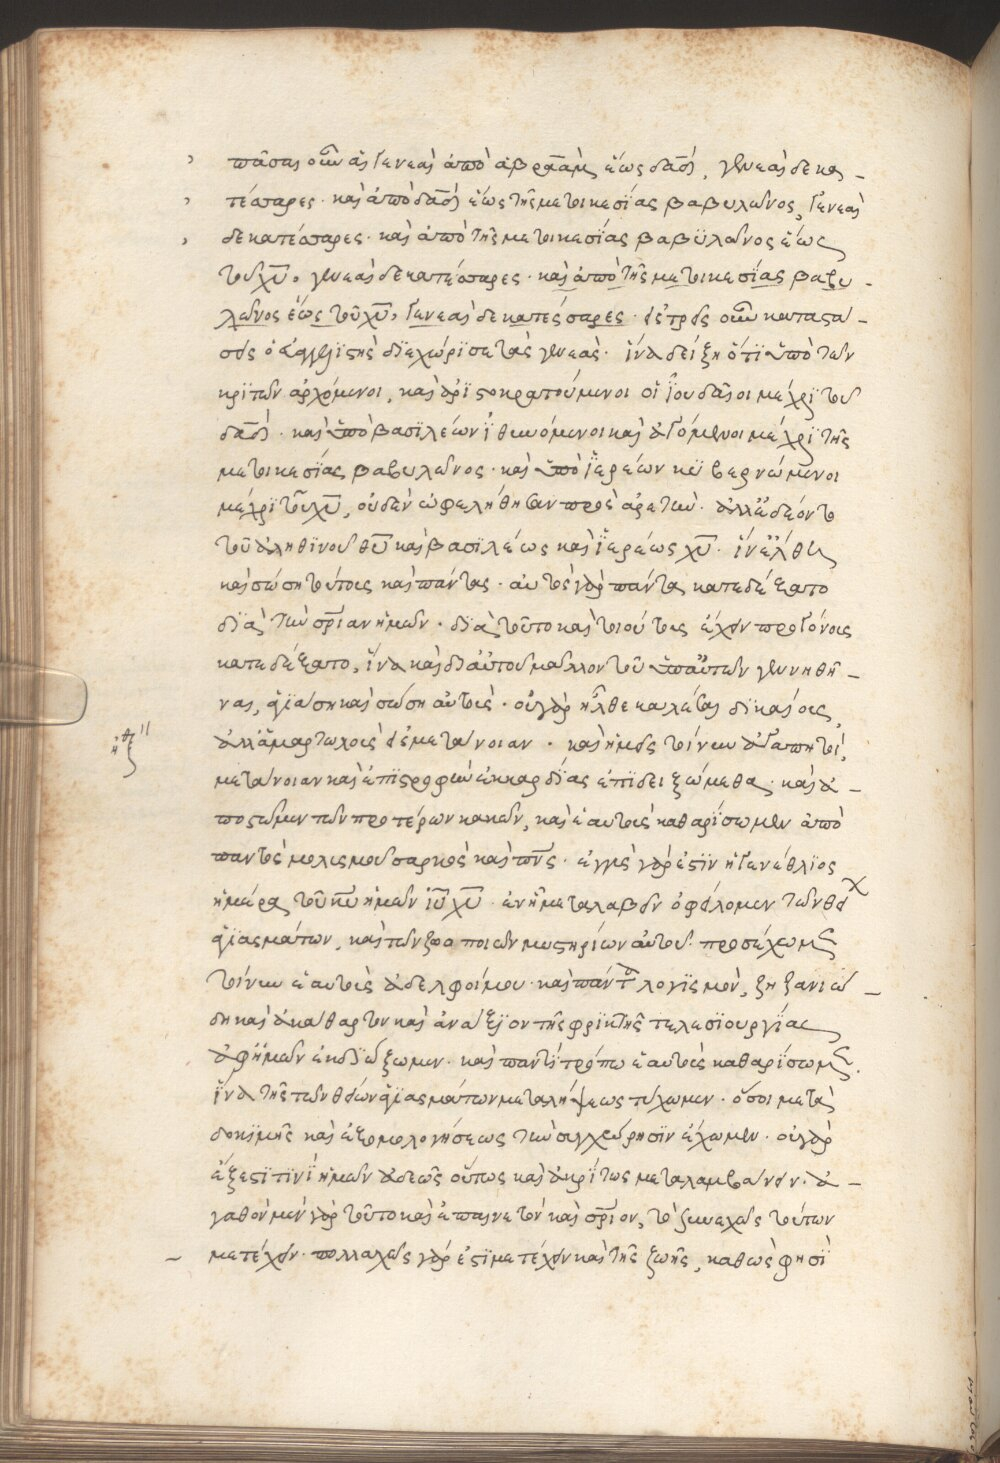 πᾶσαι οὖν αἱ γενεαὶ ἀπὸ ἀβραὰμ ἕως δαδ, γενεαὶ δεκα-
τέσσαρες· καὶ ἀπὸ δαδ ἕως τῆς μετοικεσίας βαβυλῶνος, γενεαὶ
δεκατέσσαρες· καὶ ἀπὸ τῆς μετοικεσίας βαβϋλῶνος ἕως
τοῦ χυ, γενεαὶ δεκατέσσαρες· καὶ ἀπὸ τῆς μετοικεσίας βαβυ-
λῶνος ἕως τοῦ χυ, γενεαὶ δεκατέσσαρες· εἰς τρεῖς οὖν καταστά-
σεις ὁ εὐαγγελϊστὴς διεχώρϊσε τὰς γενεάς· ἵνα δείξη ὅτϊ ὑπὸ τῶν
κριτῶν ἀρχόμενοι, καὶ ἀρϊστοκρατούμενοι οἱ ἰουδαῖοι μέχρϊ τοῦ
δαδ· καὶ ὑπὸ βασϊλέων ἰθυνόμενοι καὶ ἀγόμενοι μέχρϊ τῆς
μετοικεσίας βαβυλῶνος· καὶ ὑπὸ ἱερέων κϋβερνώμενοι
μέχρϊ τοῦ χυ, οὐδὲν ὠφελήθησαν πρὸς ἀρετήν· ἀλλ' ἐδέοντο
τοῦ ἀληθϊνοῦ θυ καὶ βασϊλέως καὶ ἱερέως χυ· ἵν' ἔλθη
καὶ σώση τούτους καὶ πάντας· αὐτὸς γὰρ πάντα κατεδέξατο
δϊὰ τὴν σρίαν ἡμῶν· δϊὰ τοῦτο καὶ τοιούτους ἔχειν προγόνους
κατεδέξατο, ἵνα καὶ δι αὐτοῦ μᾶλλον τοῦ ὑπ' αὐτῶν γεννηθῆ-
ναι, ἁγϊάση καὶ σώση αὐτούς· οὐ γὰρ ἦλθε καλέσαι δικαίους,
ἀλλ' ἁμαρτωλοὺς εἰς μετάνοιαν· καὶ ἡμεῖς τοίνυν ἀγαπητοὶ,
μετάνοιαν καὶ ἐπϊστροφὴν ἐκ καρδίας ἐπϊδειξώμεθα· καὶ ἀ-
ποστῶμεν τῶν προτέρων κακῶν, καὶ ἑαυτοὺς καθαρίσωμεν ἀπὸ
παντὸς μολισμοῦ σαρκὸς καὶ πνς· ἐγγὺς γάρ ἐστϊν ἡ γενέθλϊος
ἡμέρα τοῦ κυ ἡμῶν ἰυ χυ· ἐν ἧ μεταλαβεῖν ὀφείλομεν τῶν θεί
ἁγϊασμάτων, καὶ τῶν ζωοποιῶν μυστηρίων αὐτοῦ· προσέχωμεν
τοίνυν ἑαυτοῖς ἀδελφοί μου· καὶ πάντα λογϊσμὸν, ζηζανιώ-
δη καὶ ἀκάθαρτον καὶ ἀνάξϊον τῆς φρϊκτῆς τελεσϊουργίας
ἀφ' ἡμῶν ἐκδϊώξωμεν· καὶ παντὶ τρόπω ἑαυτοὺς καθαρίσωμεν·
ἵνα τῆς τῶν θείων ἁγϊασμάτων μεταλήψεως τύχωμεν· ὅσοι μετὰ
δοκϊμῆς καὶ ἐξομολογήσεως τὴν συγχώρησϊν ἔχωμεν· οὐ γὰρ
ἔξεστϊ τϊνὶ ἡμῶν ἀδεῶς οὕτως καὶ ἀκρίτως μεταλαμβάνειν· ἀ-
γαθὸν μὲν γὰρ τοῦτο καὶ ἐπαινετὸν καὶ σρϊον, τὸ συνεχῶς τούτων
μετέχειν· πολλαχῶς γάρ ἐστϊ μετέχειν καὶ τῆς ζωῆς, καθὼς φησϊ